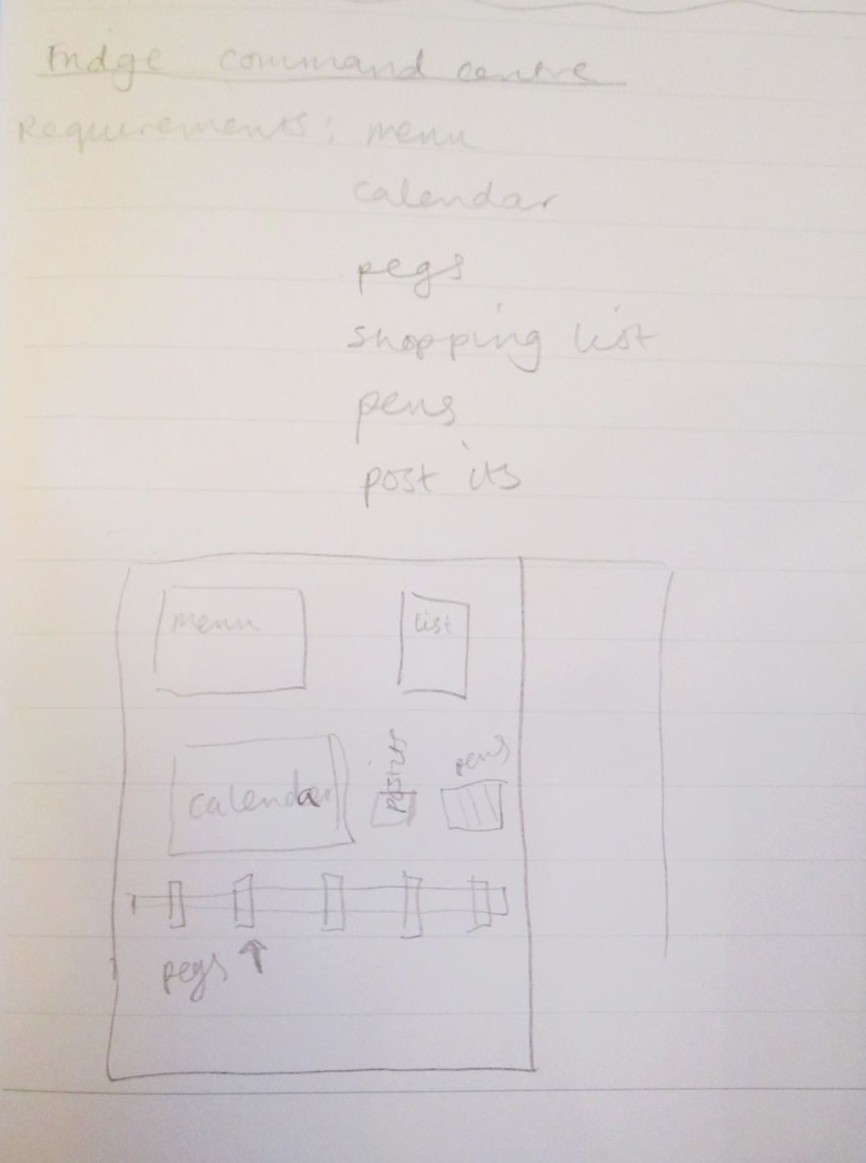 Fridge command centre
Requirements: menu
calendar
pegs
shopping list
pens
post its
menu
list
calendar
post its
pens
pegs